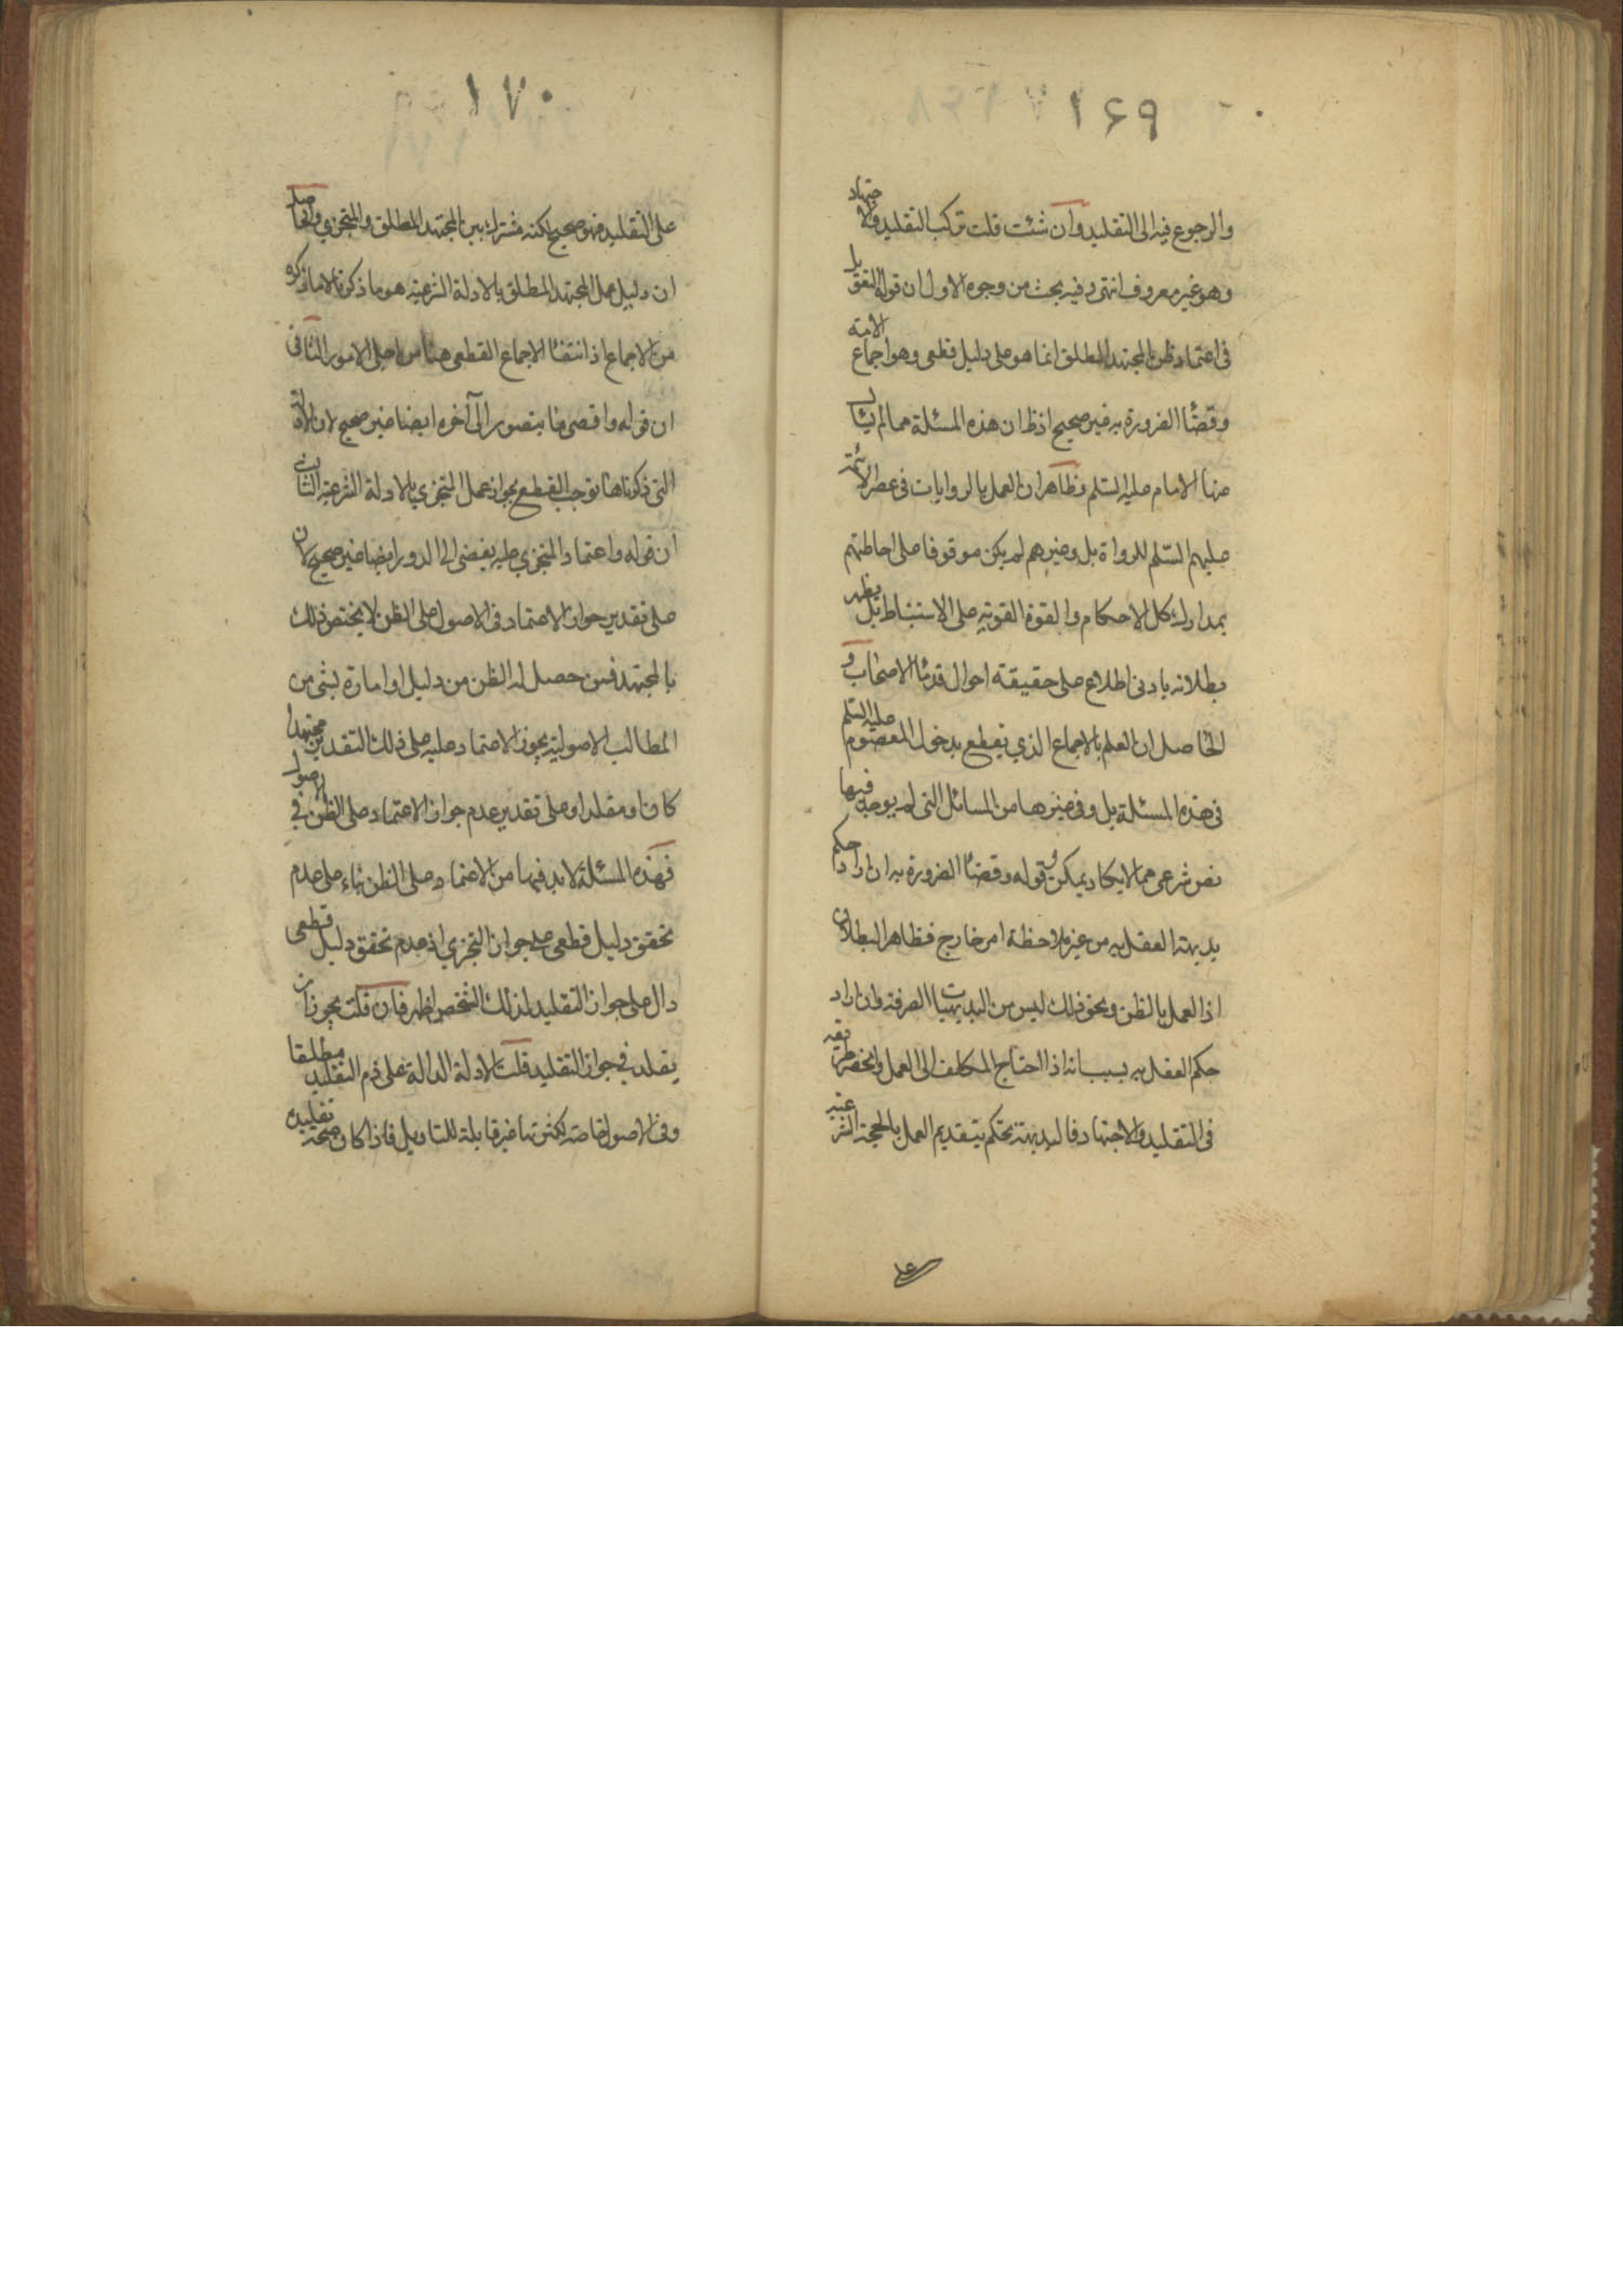 ١٦٩
والرجوع فيه الى التقليد وان شئت قلت تركب التقليد والاجتهاد
وهو غير معروف انتهى وفيه بحث من وجوه الاول ان قوله التعويل
فى اعتماد ظن المجتهد المطلق انما هو على دليل قطعى وهو اجماع الامة
وقضاء الضرورة به غير صحيح اذ ظ ان هذه المسئلة مما لم يسئل
عنها الامام عليه السلم وظاهر ان العمل بالروايات فى عصر الائمة
عليهم السلم للرواة بل وغيرهم لم يكن موقوفا على احاطتهم
بمدارك كل الاحكام والقوة القوية على الاستنباط بل يظهر
بطلانه بادنى اطلاع على حقيقة احوال قدماء الاصحاب و
الحاصل ان العلم بالاجماع الذي يقطع بدخول المعصوم عليه السلم
فى هذه المسئلة بل وفى غيرها من المسائل التى لم يوجد فيها
نص شرعى مما لا يكاد يمكن و قوله وقضاء الضرورة به ان اراد حكم
بديهة العقل به من غير ملاحظة امر خارج فظاهر البطلان
اذ العمل بالظن ونحو ذلك ليس من البديهيات الصرفة وان اراد
حكم العقل به بسبب انه اذا احتاج المكلف الى العمل وانحصر طريقه
فى التقليد والاجتهاد فالبديهة تحكم بتقديم العمل بالحجة الشرعية
على
١٧٠
على التقليد فهو صحيح لكنه مشترك بين المجتهد المطلق والمتجزي والحاصل
ان دليل عمل المجتهد المطلق بالادلة الشرعية هو ما ذكرنا لا ما ذكره
من الاجماع اذ انتفاء الاجماع القطعى هنا من اجلى الامور الثانى
ان قوله واقصى ما يتصور الى آخره ايضا غير صحيح لان الادلة
التى ذكرناها توجب القطع بجواز عمل المتجزي بالادلة الشرعية الثالث
ان قوله واعتماد المتجزي عليه يفضى الى الدور ايضا غير صحيح لان
على تقدير جواز الاعتماد فى الاصول على الظن لا يختص ذلك
بالمجتهد فمن حصل له الظن من دليل او امارة بشئ من
المطالب الاصولية يجوز الاعتماد عليه على ذلك التقدير مجتهدا
كان او مقلدا وعلى تقدير عدم جواز الاعتماد على الظن في الاصول
فهذه المسئلة لابد فيها من الاعتماد على الظن بناء على عدم
تحقق دليل قطعى على جواز التجزي اذ عدم تحقق دليل قطعى
دال على جواز التقليد لذلك الشخص اظهر فان قلت يجوز ان
يقلد في جواز التقليد قلت الادلة الدالة على ذم التقليد مطلقا
وفى الاصول خاصة لكثرتها غير قابلة للتاويل فاذا كان صحة تقليده